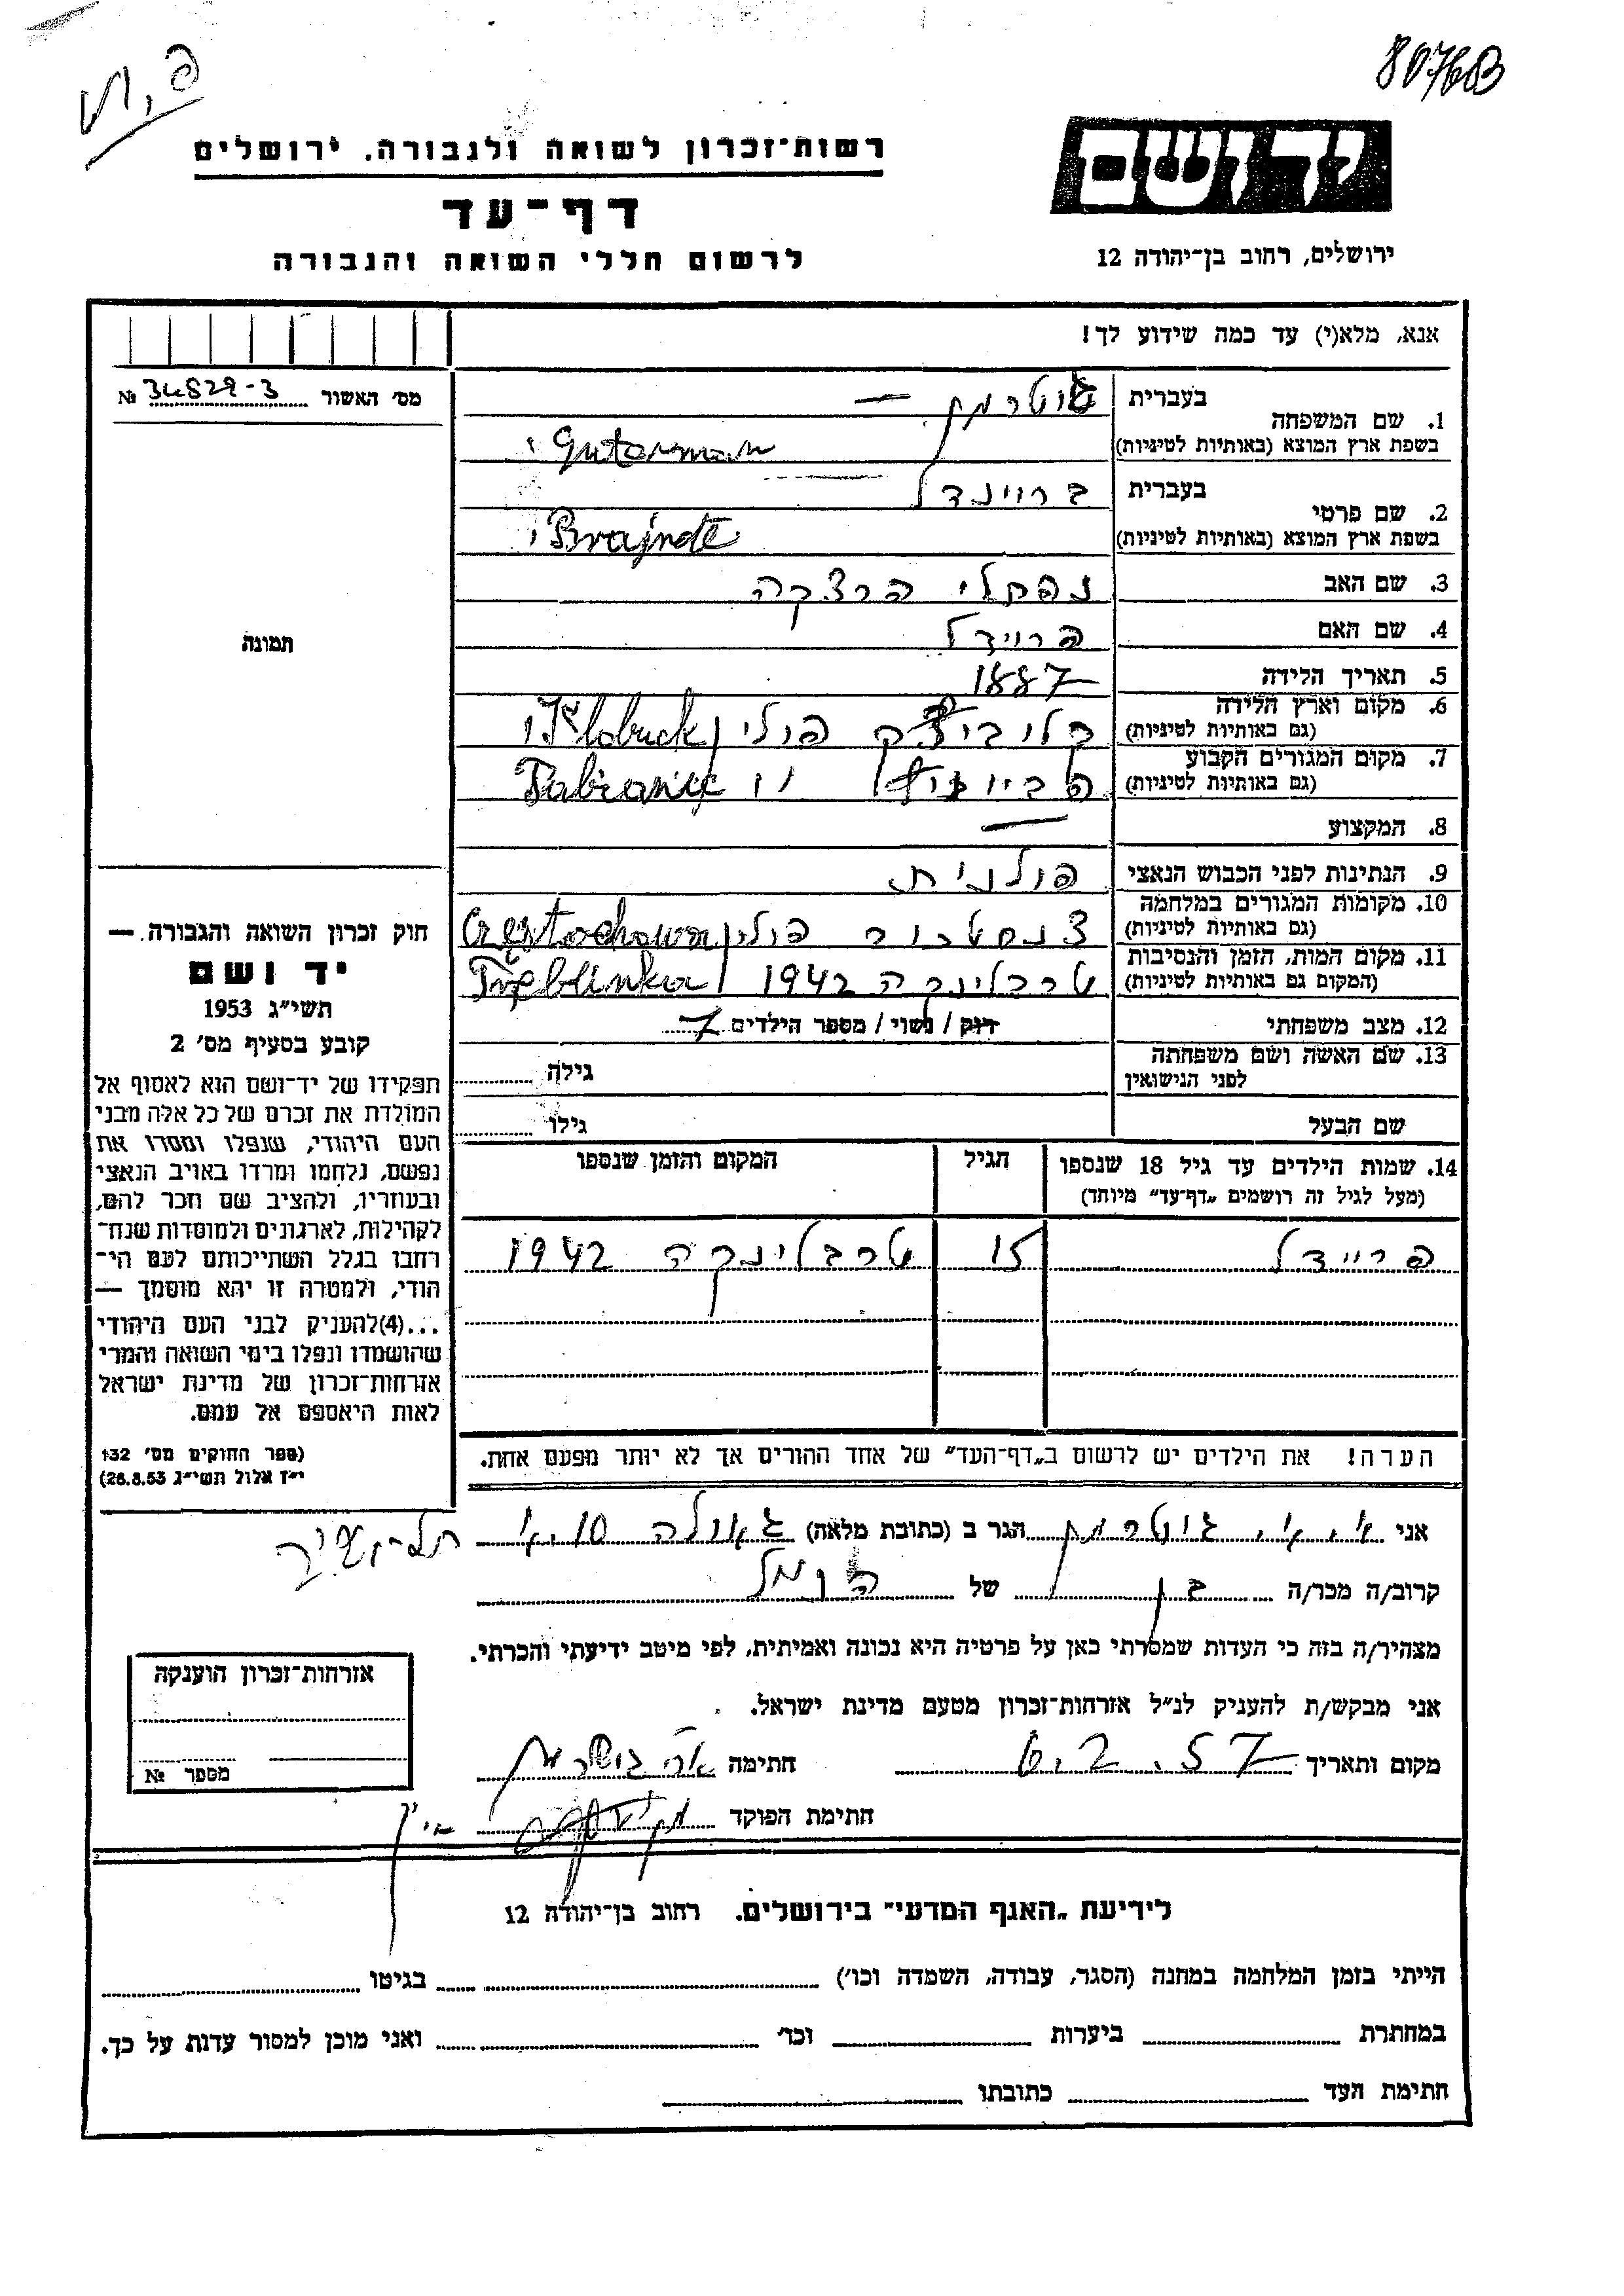 80768
פ.ת
ידושם
ירושלים, רחוב בן־יהודה 12
רשות־זכרון לשואה ולגבורה, ירושלים
דף־עד
לרשום חללי השואה והגבורה
אנא, מלא(י) עד כמה שידוע לך!
1. שם המשפחה
בעברית גוטרמן —
בשפת ארץ המוצא (באותיות לטיניות) Guterman
2. שם פרטי
בעברית בריינדל
בשפת ארץ המוצא (באותיות לטיניות)
3. שם האב נפתלי הרצקה
4. שם האם פריידל
5. תאריך הלידה 1887
6. מקום וארץ הלידה
(גם באותיות לטיניות) פולין Kłobuck
7. מקום המגורים הקבוע
(גם באותיות לטיניות) Pabianice
8. המקצוע —
9. הנתינות לפני הכבוש הנאצי פולנית
10. מקומות המגורים במלחמה
(גם באותיות לטיניות) צנסטכוב פולין Częstochowa
11. מקום המות, הזמן והנסיבות
(המקום גם באותיות לטיניות) טרבלינקה 1942 Treblinka
12. מצב משפחתי רוק / נשוי / מספר הילדים 7
13. שם האשה ושם משפחתה
לפני הנישואין גילה
שם הבעל גילו
14. שמות הילדים עד גיל 18 שנספו
(מעל לגיל זה רושמים „דף־עד" מיוחד)
הגיל
המקום והזמן שנספו
פריידל 15 טרבלינקה 1942
הערה! את הילדים יש לרשום ב„דף־העד" של אחד ההורים אך לא יותר מפעם אחת.
מס׳ האשור № 34829-3
תמונה
חוק זכרון השואה והגבורה —
יד ושם
תשי״ג 1953
קובע בסעיף מס׳ 2
תפקידו של יד־ושם הוא לאסוף אל
המולדת את זכרם של כל אלה מבני
העם היהודי, שנפלו ומסרו את
נפשם, נלחמו ומרדו באויב הנאצי
ובעוזריו, ולהציב שם וזכר להם,
לקהילות, לארגונים ולמוסדות שנח־
רחבו בגלל השתייכותם לעם הי־
הודי, ולמטרה זו יהא מוסמך —
...(4)להעניק לבני העם היהודי
שהושמדו ונפלו בימי השואה והמרי
אזרחות־זכרון של מדינת ישראל
לאות היאספם אל עמם.
(ספר החוקים מס׳ 132
י״ז אלול תשי״ג 26.8.53)
אני א.א. גוטרמן הגר ב (כתובת מלאה) גאולה 10.א תל-אביב
קרוב/ה מכר/ה בן של הנ״ל
מצהיר/ה בזה כי העדות שמסרתי כאן על פרטיה היא נכונה ואמיתית, לפי מיטב ידיעתי והכרתי.
אני מבקש/ת להעניק לנ״ל אזרחות־זכרון מטעם מדינת ישראל.
מקום ותאריך 6.2.57 חתימה
חתימת הפוקד
אזרחות־זכרון הוענקה
מספר №
לידיעת „האגף המדעי" בירושלים, רחוב בן־יהודה 12
הייתי בזמן המלחמה במחנה (הסגר, עבודה, השמדה וכו׳) בגיטו
במחתרת ביערות וכו׳ ואני מוכן למסור עדות על כך.
חתימת העד כתובתו